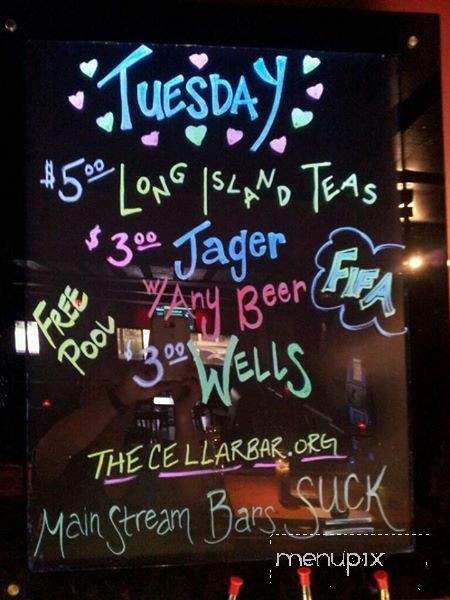 Tuesday
$5.00 Long Island Teas
$3.00 Jager
w/Any Beer
FIFA
Free
Pool
$3.00 Wells
TheCellarBar.org
Mainstream Bars Suck
menupix